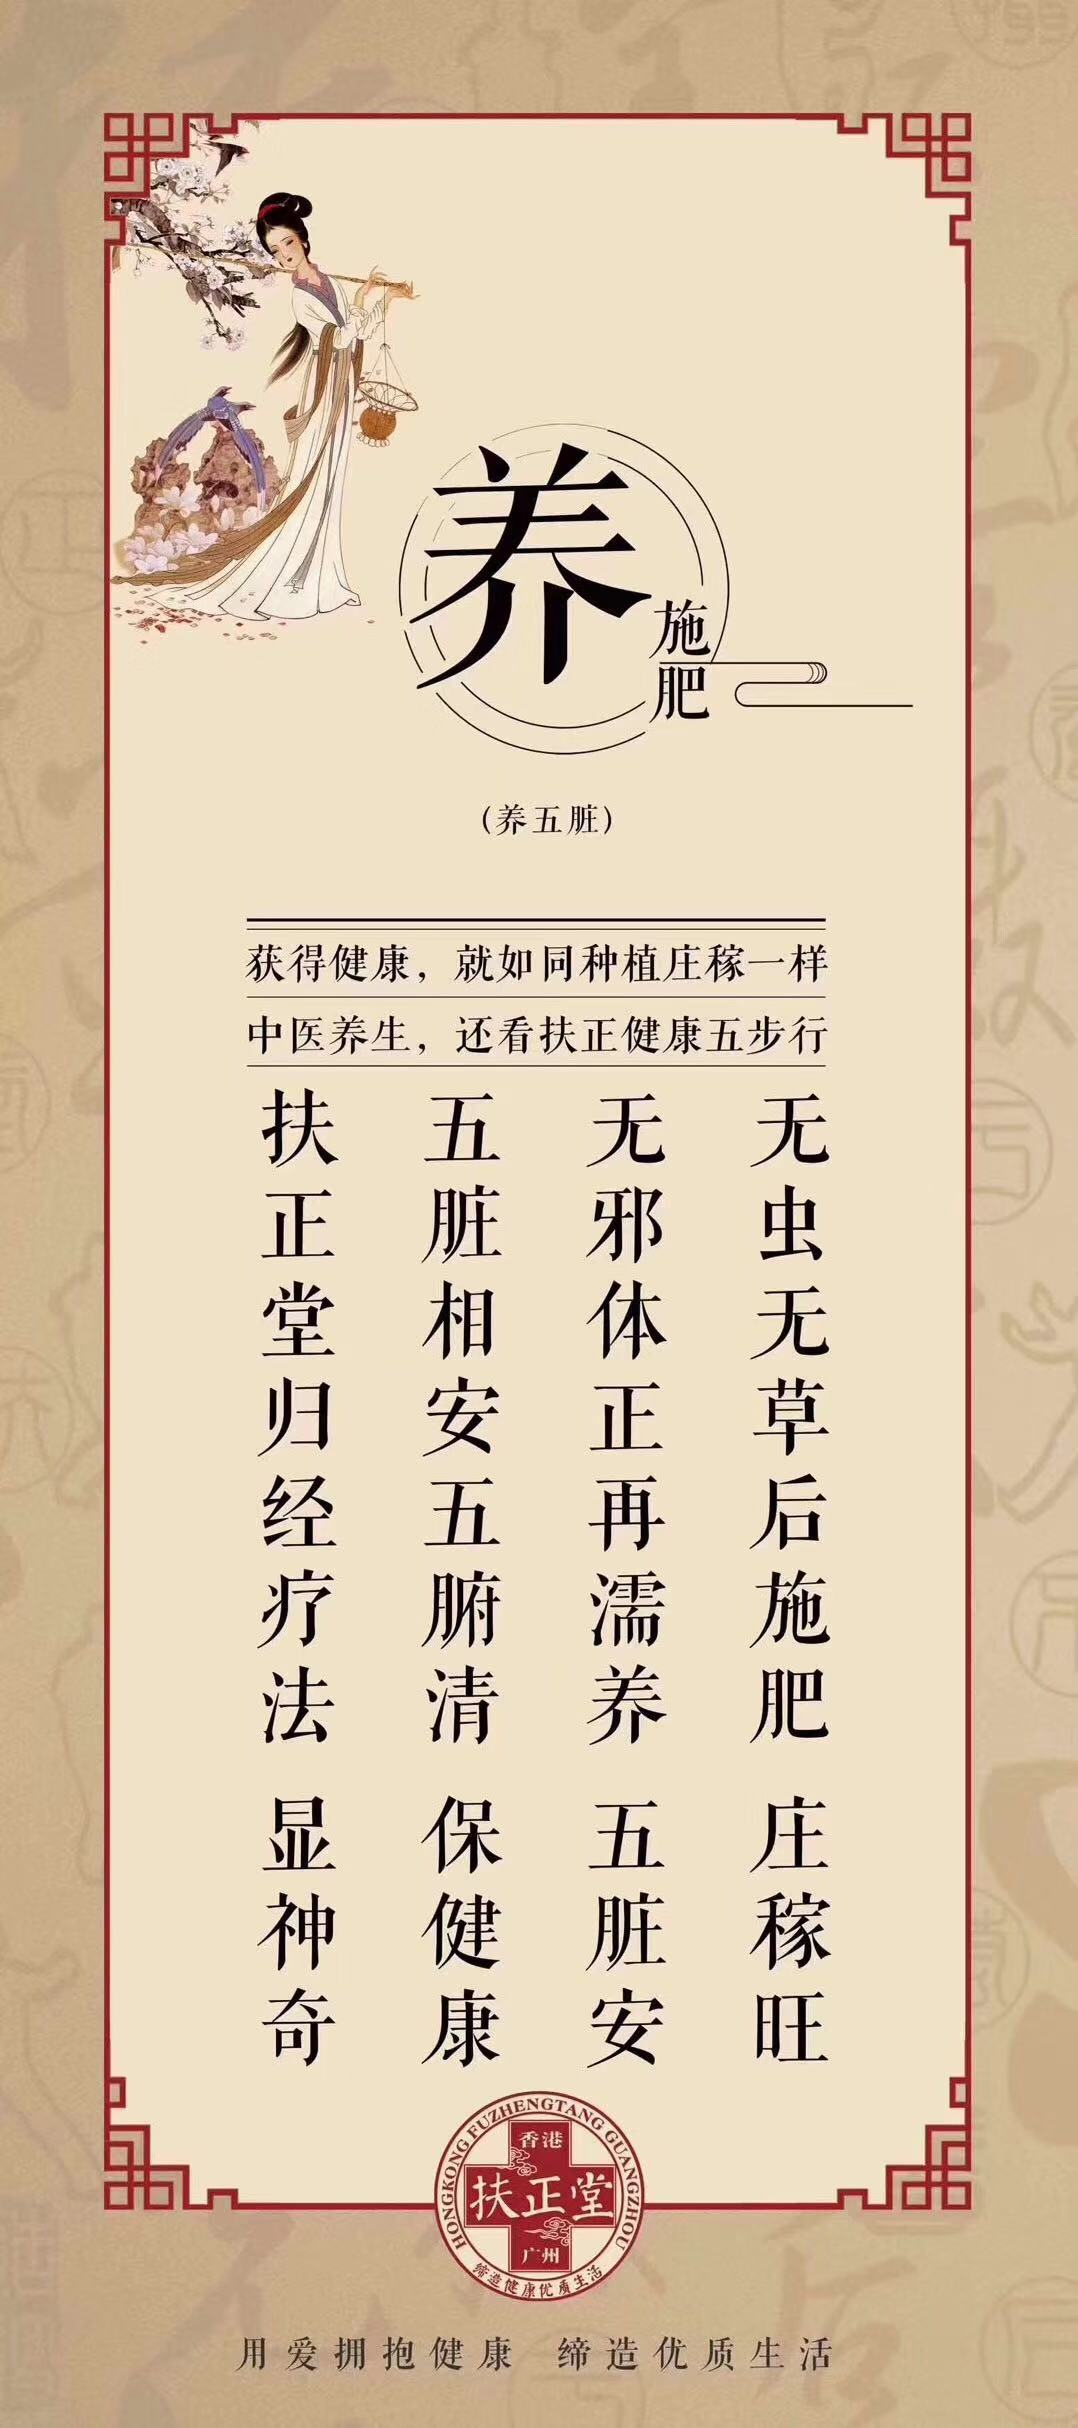 养
施肥
(养五脏)
获得健康，就如同种植庄稼一样
中医养生，还看扶正健康五步行
无虫无草后施肥 庄稼旺
无邪体正再濡养 五脏安
五脏相安五腑清 保健康
扶正堂归经疗法 显神奇
HONGKONG FUZHENGTANG GUANGZHOU
香港
扶正堂
广州
缔造健康优质生活
用爱拥抱健康 缔造优质生活